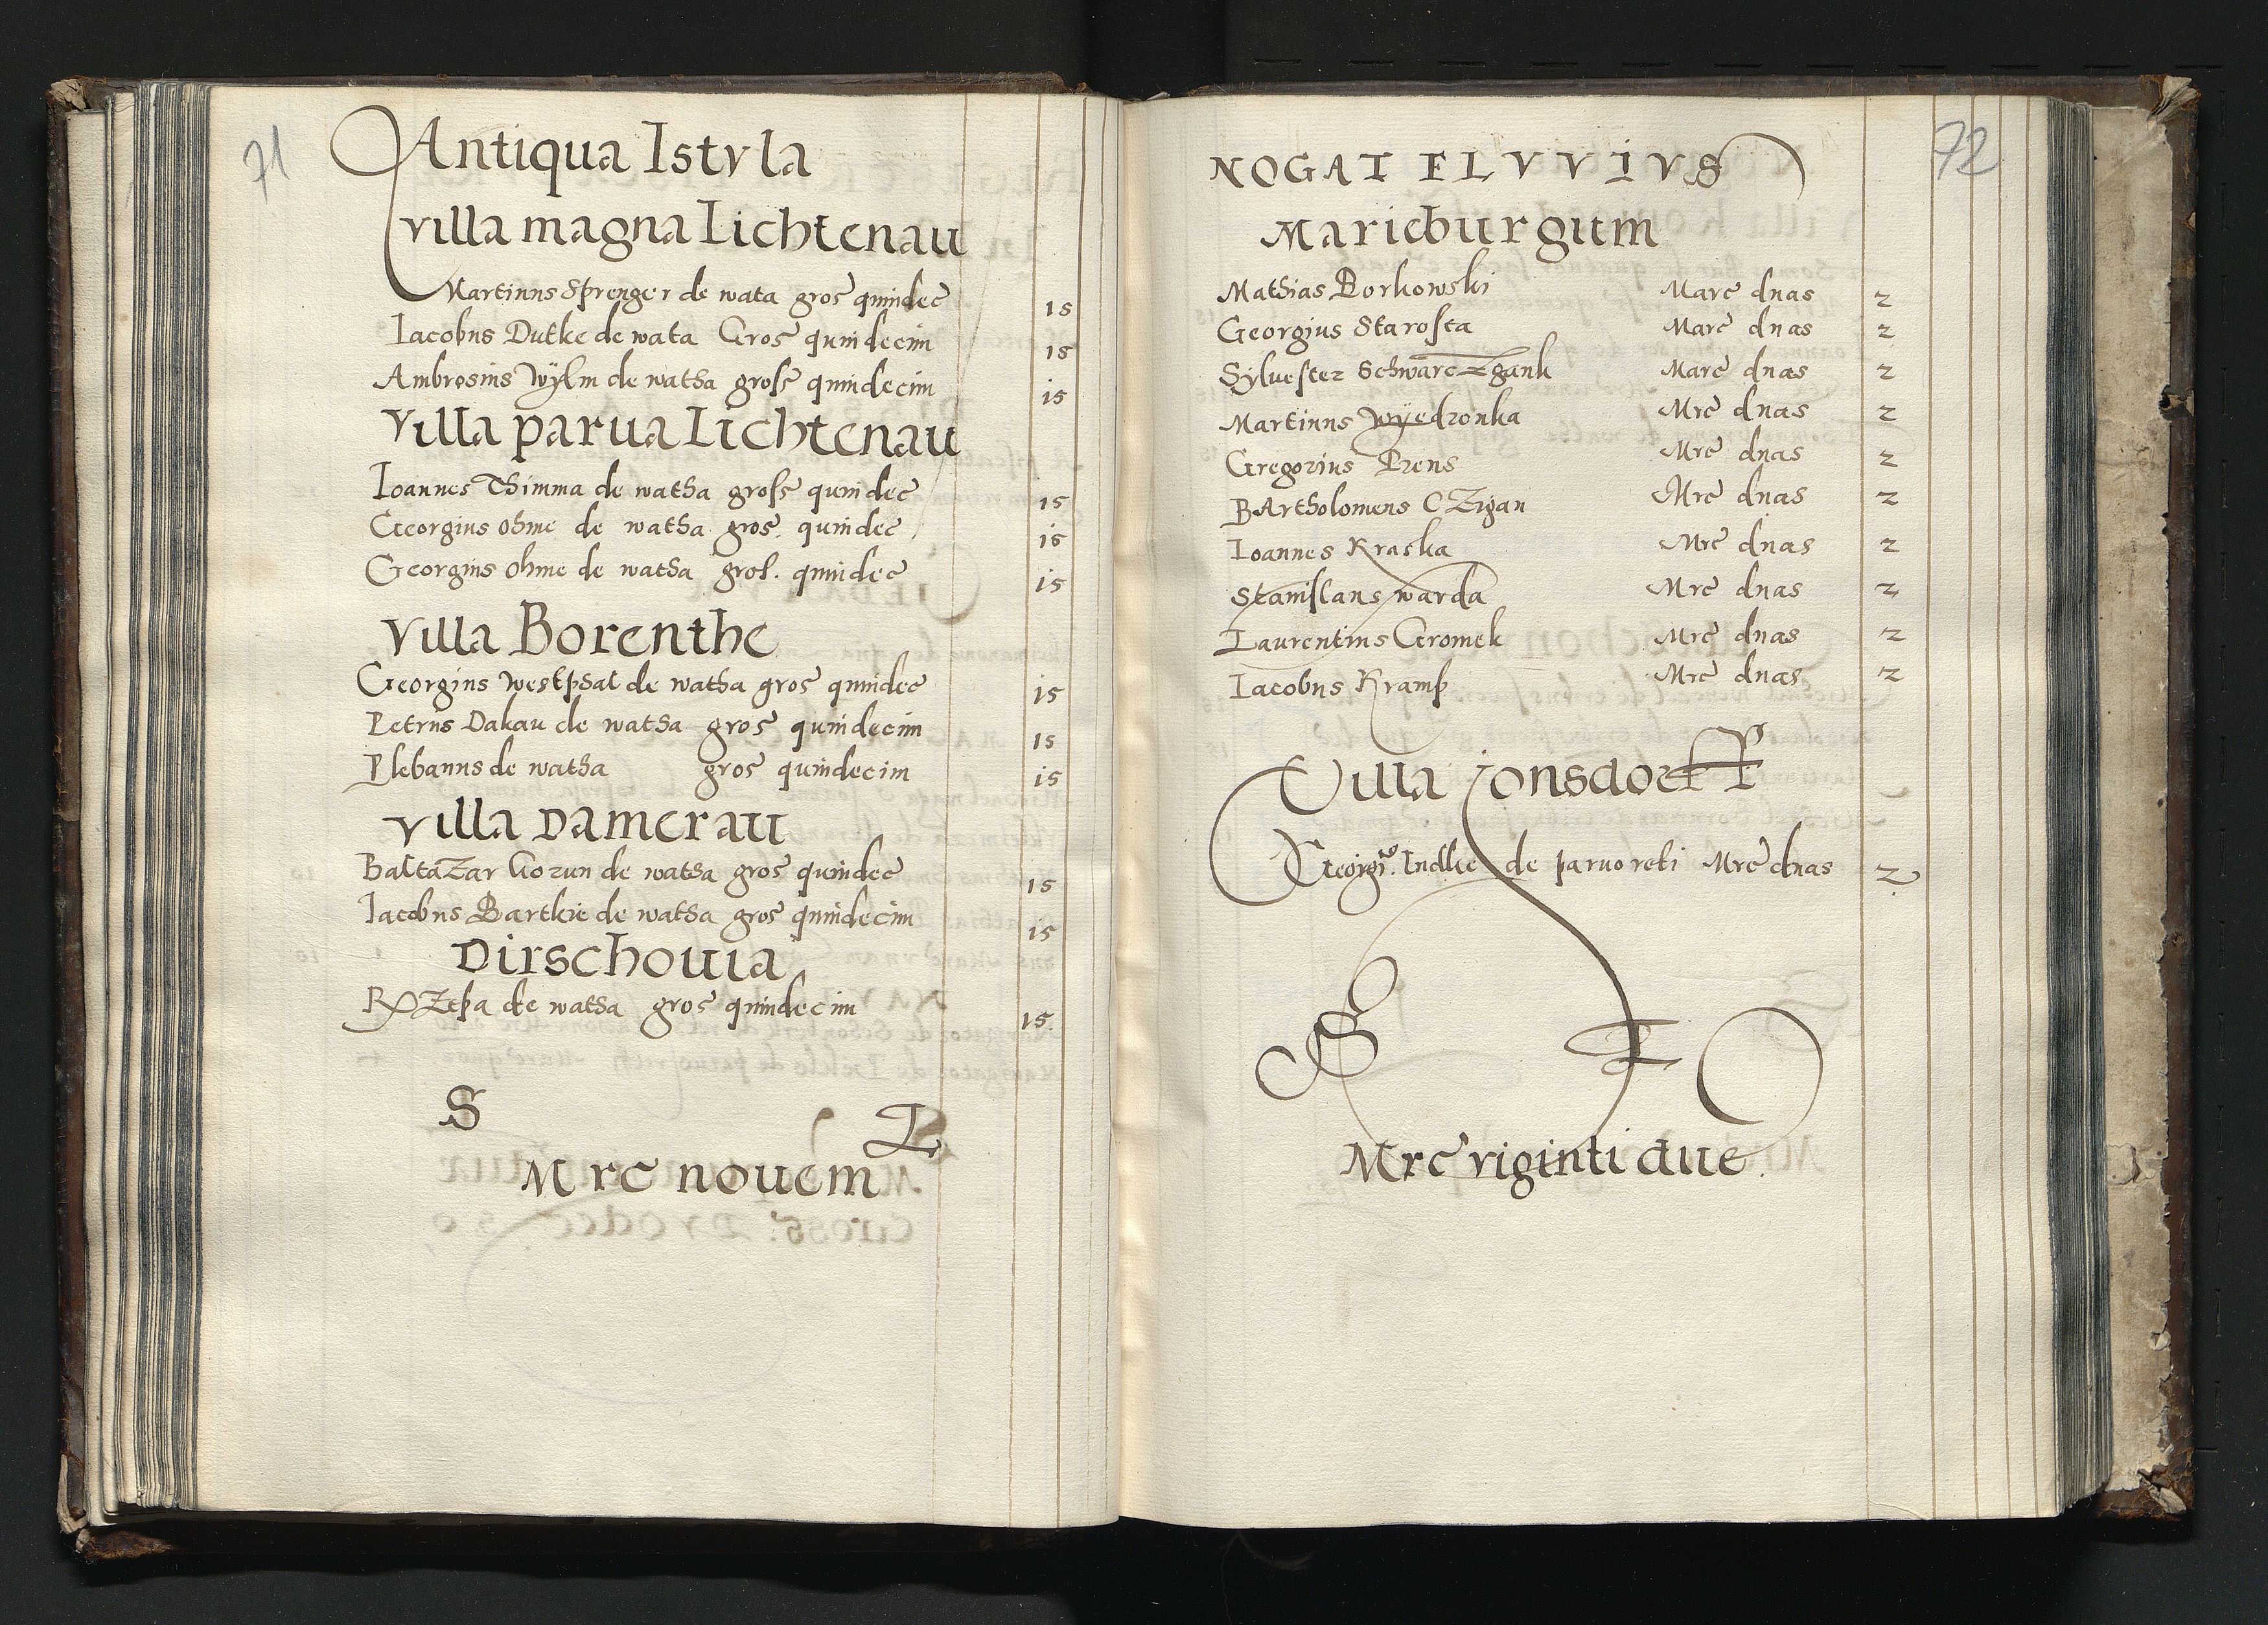 71
Antiqua Istvla
villa magna Lichtenau
Martinus Sprenger de wata gros quindec 15
Iacobus Dutke de wata Gros quindecim 15
Ambrosius Wÿlm de watha gross quindecim 15
Villa parua Lichtenau
Ioannes Thimma de watha gross quindec 15
Georgius ohme de watha gros. quindec 15
Georgius ohme de watha gros. quindec 15
Villa Borenthe
Georgius Westphal de watha gros quindec 15
Petrus Dakau de watha gros quindecim 15
Plebanus de watha gros quindecim 15
Villa Damerau
Baltazar Gorun de watha gros quindec 15
Iacobus Bartkie de watha gros quindecim 15
Dirschouia
RZepa de watha gros quindecim 15.
S
Mrc nouem
72
NOGAT FLVVIVS
Marieburgum
Mathias Borkowski Marc duas 2
Georgius Starosta Marc duas 2
Sylvester Schwarczgank Marc duas 2
Martinus Wÿedronka Mrc duas 2
Gregorius Prens Mrc duas 2
BArtholomeus CZigan Mrc duas 2
Ioannes Kraska Mrc duas 2
Stanislaus warda Mrc duas 2
Laurentius Gromek Mrc duas 2
Iacobus Kramp Mrc duas 2
Villa Jonsdorff
Georgi9. Indke de paruo reti Mrc duas 2
S T O
Mrc viginti due.